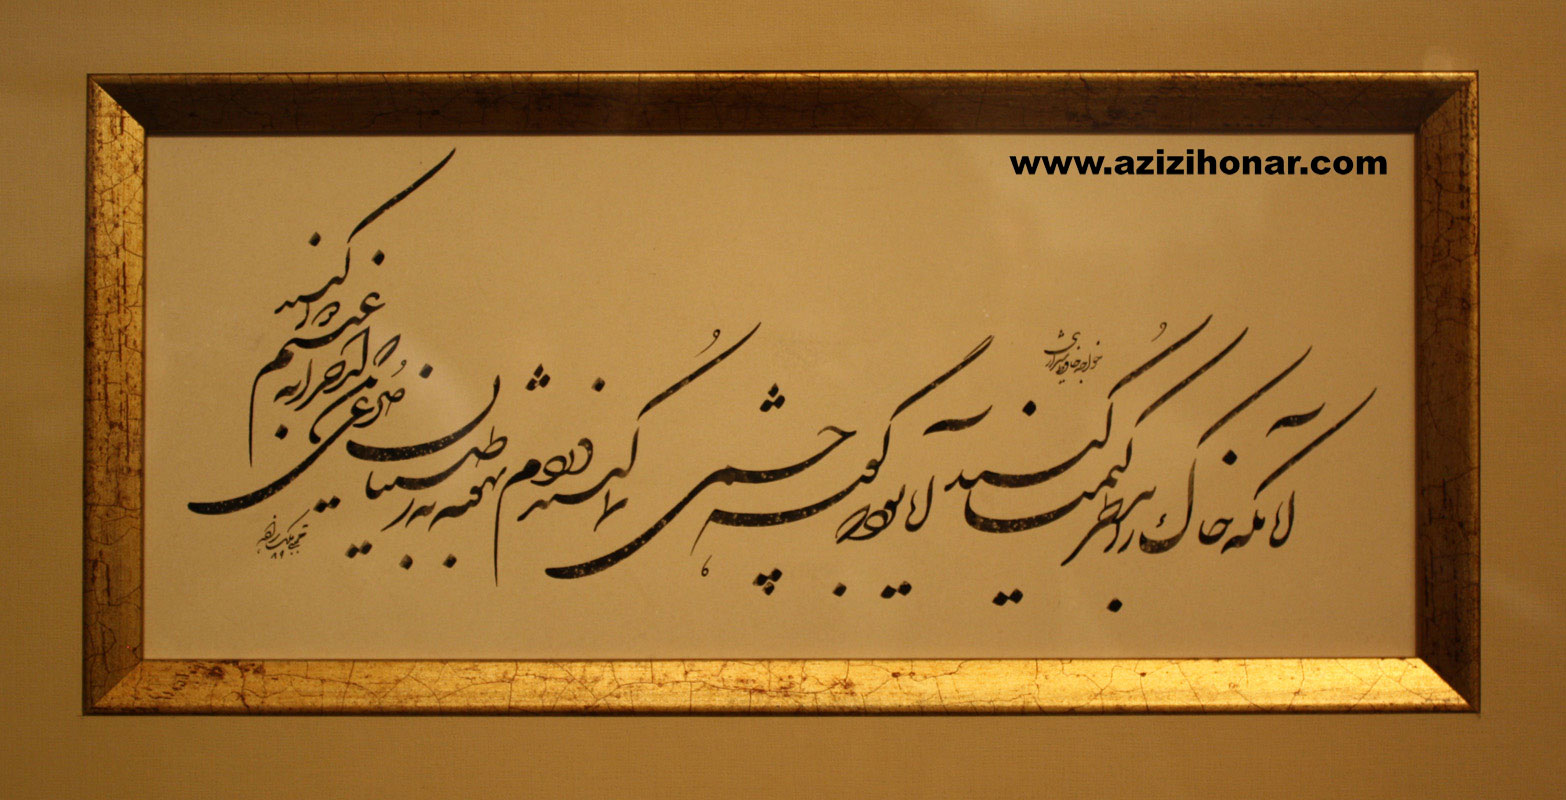 www.azizihonar.com
خواجه حافظ شیرازی
آنانکه خاک را بنظر کیمیا کنند
آیا بود که گوشه چشمی بما کنند
دردم نهفته به ز طبیبان مدعی
باشد که از خزانه غیبم دوا کنند
مجتبی ملک زاده ۸۶